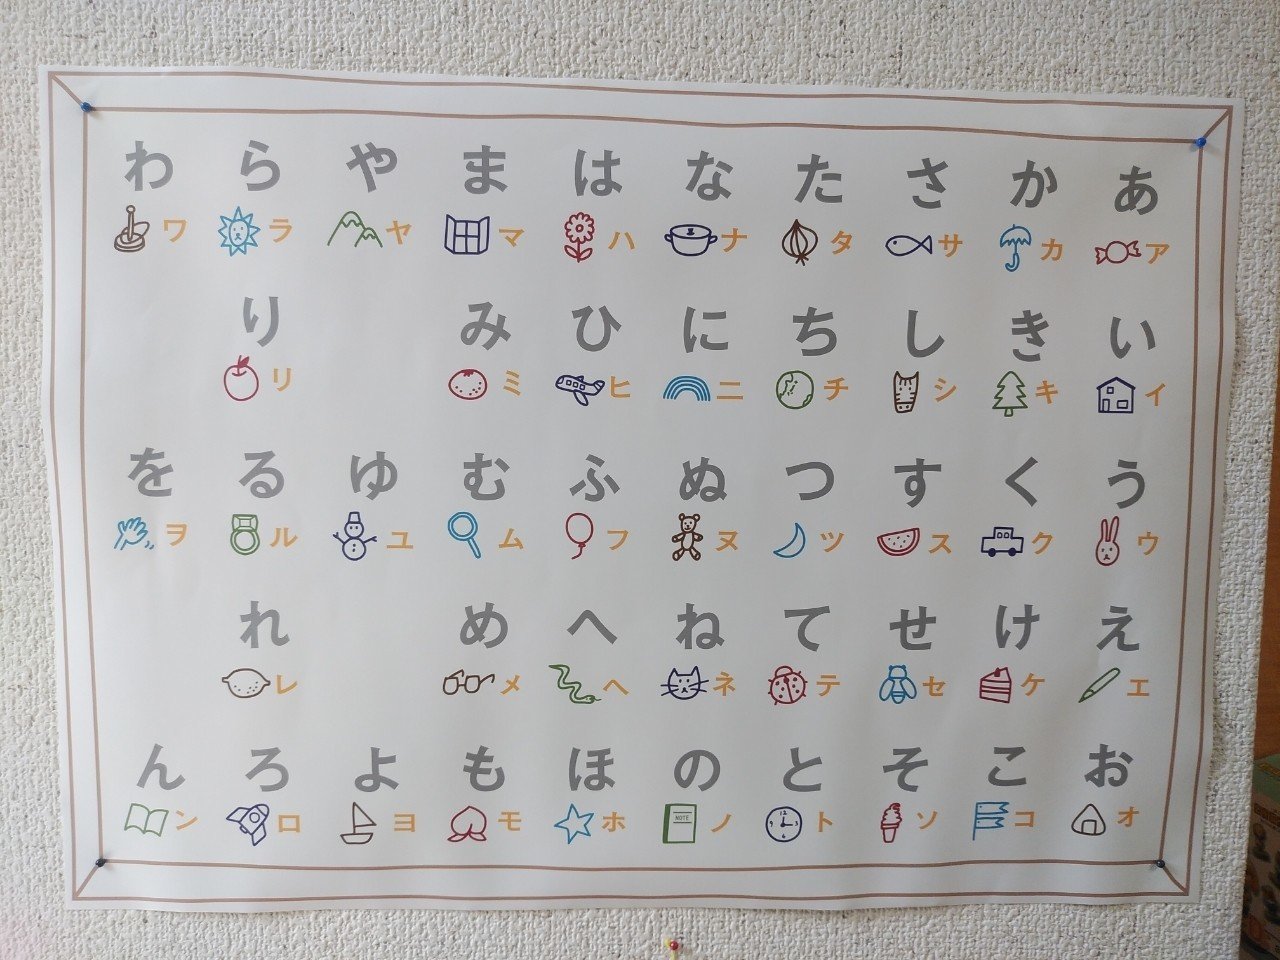 あ ア い イ う ウ え エ お オ
か カ き キ く ク け ケ こ コ
さ サ し シ す ス せ セ そ ソ
た タ ち チ つ ツ て テ と ト 12 3 6 9
な ナ に ニ ぬ ヌ ね ネ の ノ NOTE
は ハ ひ ヒ ふ フ へ ヘ ほ ホ
ま マ み ミ む ム め メ も モ
や ヤ ゆ ユ よ ヨ
ら ラ り リ る ル れ レ ろ ロ
わ ワ を ヲ ん ン